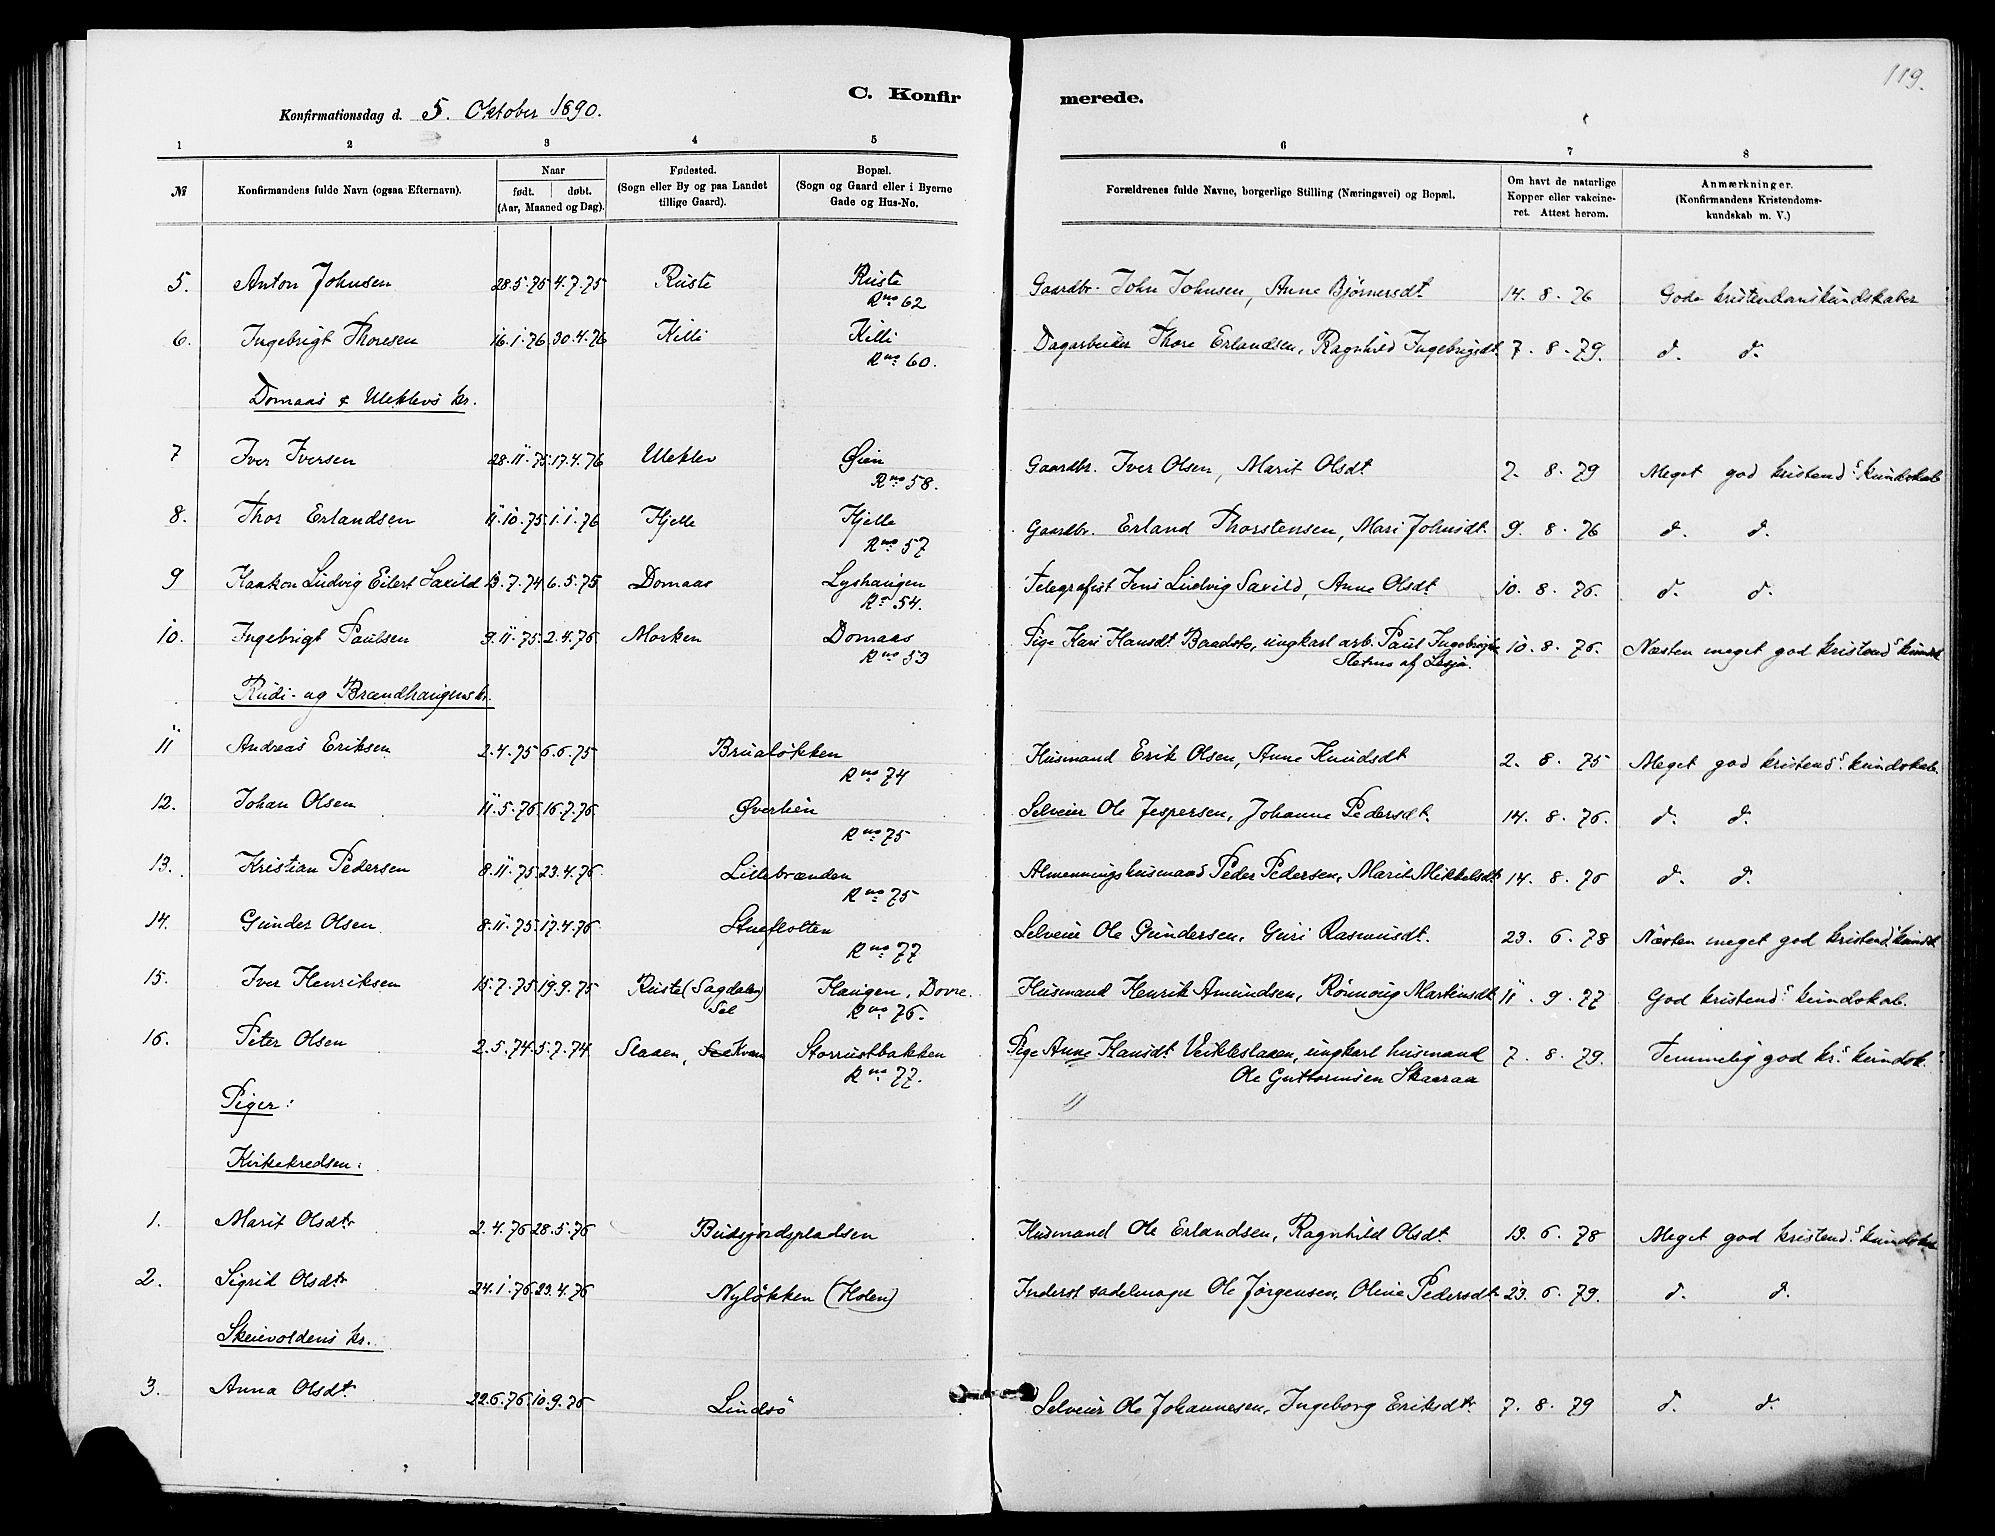 119.
C. Konfir merede.
Konfirmationsdag d. 5. Oktober 1890.
1 2 3 4 5 6 7 8
№ Konfirmandens fulde Navn (ogsaa Efternavn). Naar født. døbt. (Aar, Maaned og Dag). Fødested. (Sogn eller By og paa Landet tillige Gaard). Bopæl. (Sogn og Gaard eller i Byerne Gade og Hus-No. Forældrenes fulde Navne, borgerlige Stilling (Næringsvei) og Bopæl. Om havt de naturlige Kopper eller vakcineret. Attest herom. Anmærkninger. (Konfirmandens Kristendomskundskab m. V.)
5. Anton Johnsen 28.5.75 4.7.75 Ruste Ruste Gaardbr. John Johnsen, Anne Bjørnersdt. 14. 8. 76 Gode kristendomskundskaber
R no 62
6. Ingebrigt Thoresen 16.1.76 30.4.76 Killi Killi Dagarbeider Thore Erlandsen, Ragnhild Ingebrigsdt. 7. 8. 79. d. d.
R no 60.
Domaas & Uleklevs kr.
7 Iver Iversen 28.11.75 17.4.76 Uleklev Øien Gaardbr. Iver Olsen, Marit Olsdt 2. 8. 79 Meget god kristend.s kundskab
R no 58.
8. Thor Erlandsen 11.10.75 1.1.76 Kjelle Kjelle Gaardbr. Erland Thorstensen, Mari Johnsdt. 9. 8. 76 d. d.
R no 57
9 Haakon Ludvig Eilert Saxild 13.7.74 6.5.75 Domaas Lyshaugen Telegrafist Jens Ludvig Saxild, Anne Olsdt 10. 8. 76. d. d.
R n 54.
10. Ingebrigt Paulsen 9.11.75 2.4.76 Morken Domaas Pige Kari Hansdt. Baadstø, ungkarl arb. Paul Ingebrigts. 10. 8. 76. Næsten meget god kristend.s kundsk
R no 53 af Lesja.
Rudi- og Brændhaugens kr.
11 Andreas Eriksen 2.4.75 6.6.75 Brualøkken Husmand Erik Olsen, Anne Knudsdt 2. 8. 75 Meget god kristend.s kundskab.
R no 74
12. Johan Olsen 11.5.76. 16.7.76 Øverlien Selveier Ole Jespersen, Johanne Pedersdt. 14. 8. 76. d. d.
R no 75
13. Kristian Pedersen 8.11.75 23.4.76 Lillebrænden Almenningshusmand Peder Pedersen, Marit Mikkelsdt. 14. 8. 76 d. d.
R no 75
14. Gunder Olsen 8.11.75 17.4.76 Stueflotten Selveier Ole Gundersen, Guri Rasmusdt. 23. 6. 78 Næsten meget god kristend.s kundsk
R no 77
15. Iver Henriksen 15.7.75 19.9.75 Ruste (Sagdalen) Haugen, Dovre. Husmand Henrik Amundsen, Rønnoug Martinsdt. 11. 9. 77 God kristend.s kundskab.
Sel R no 76.
16. Peter Olsen 2.5.74 5.7.74 Slaaen, Sel Kvam Storrustbakken Pige Anne Hansdt. Veikleslaaen, ungkarl husmand 7. 8. 79. Temmelig god kr.s kundsk.
R no 77. Ole Guttormsen Skaaraa
Piger:
Kirkekredsen:
1. Marit Olsdtr 2.4.76 28.5.76 Budsjordspladsen Husmand Ole Erlandsen, Ragnhild Olsdt. 13. 6. 78 Meget god kristend.s kundskab
2. Sigrid Olsdtr 24.1.76 23.4.76 Nyløkken (Holen) Inderst sadelmager Ole Jørgensen, Oline Pedersdt. 23. 6. 79. d. d.
Skeievoldens kr.
3. Anna Olsdt. 22.6.76 10.9.76 Lindsø Selveier Ole Johannesen, Ingeborg Eriksdtr. 7. 8. 79 d. d.